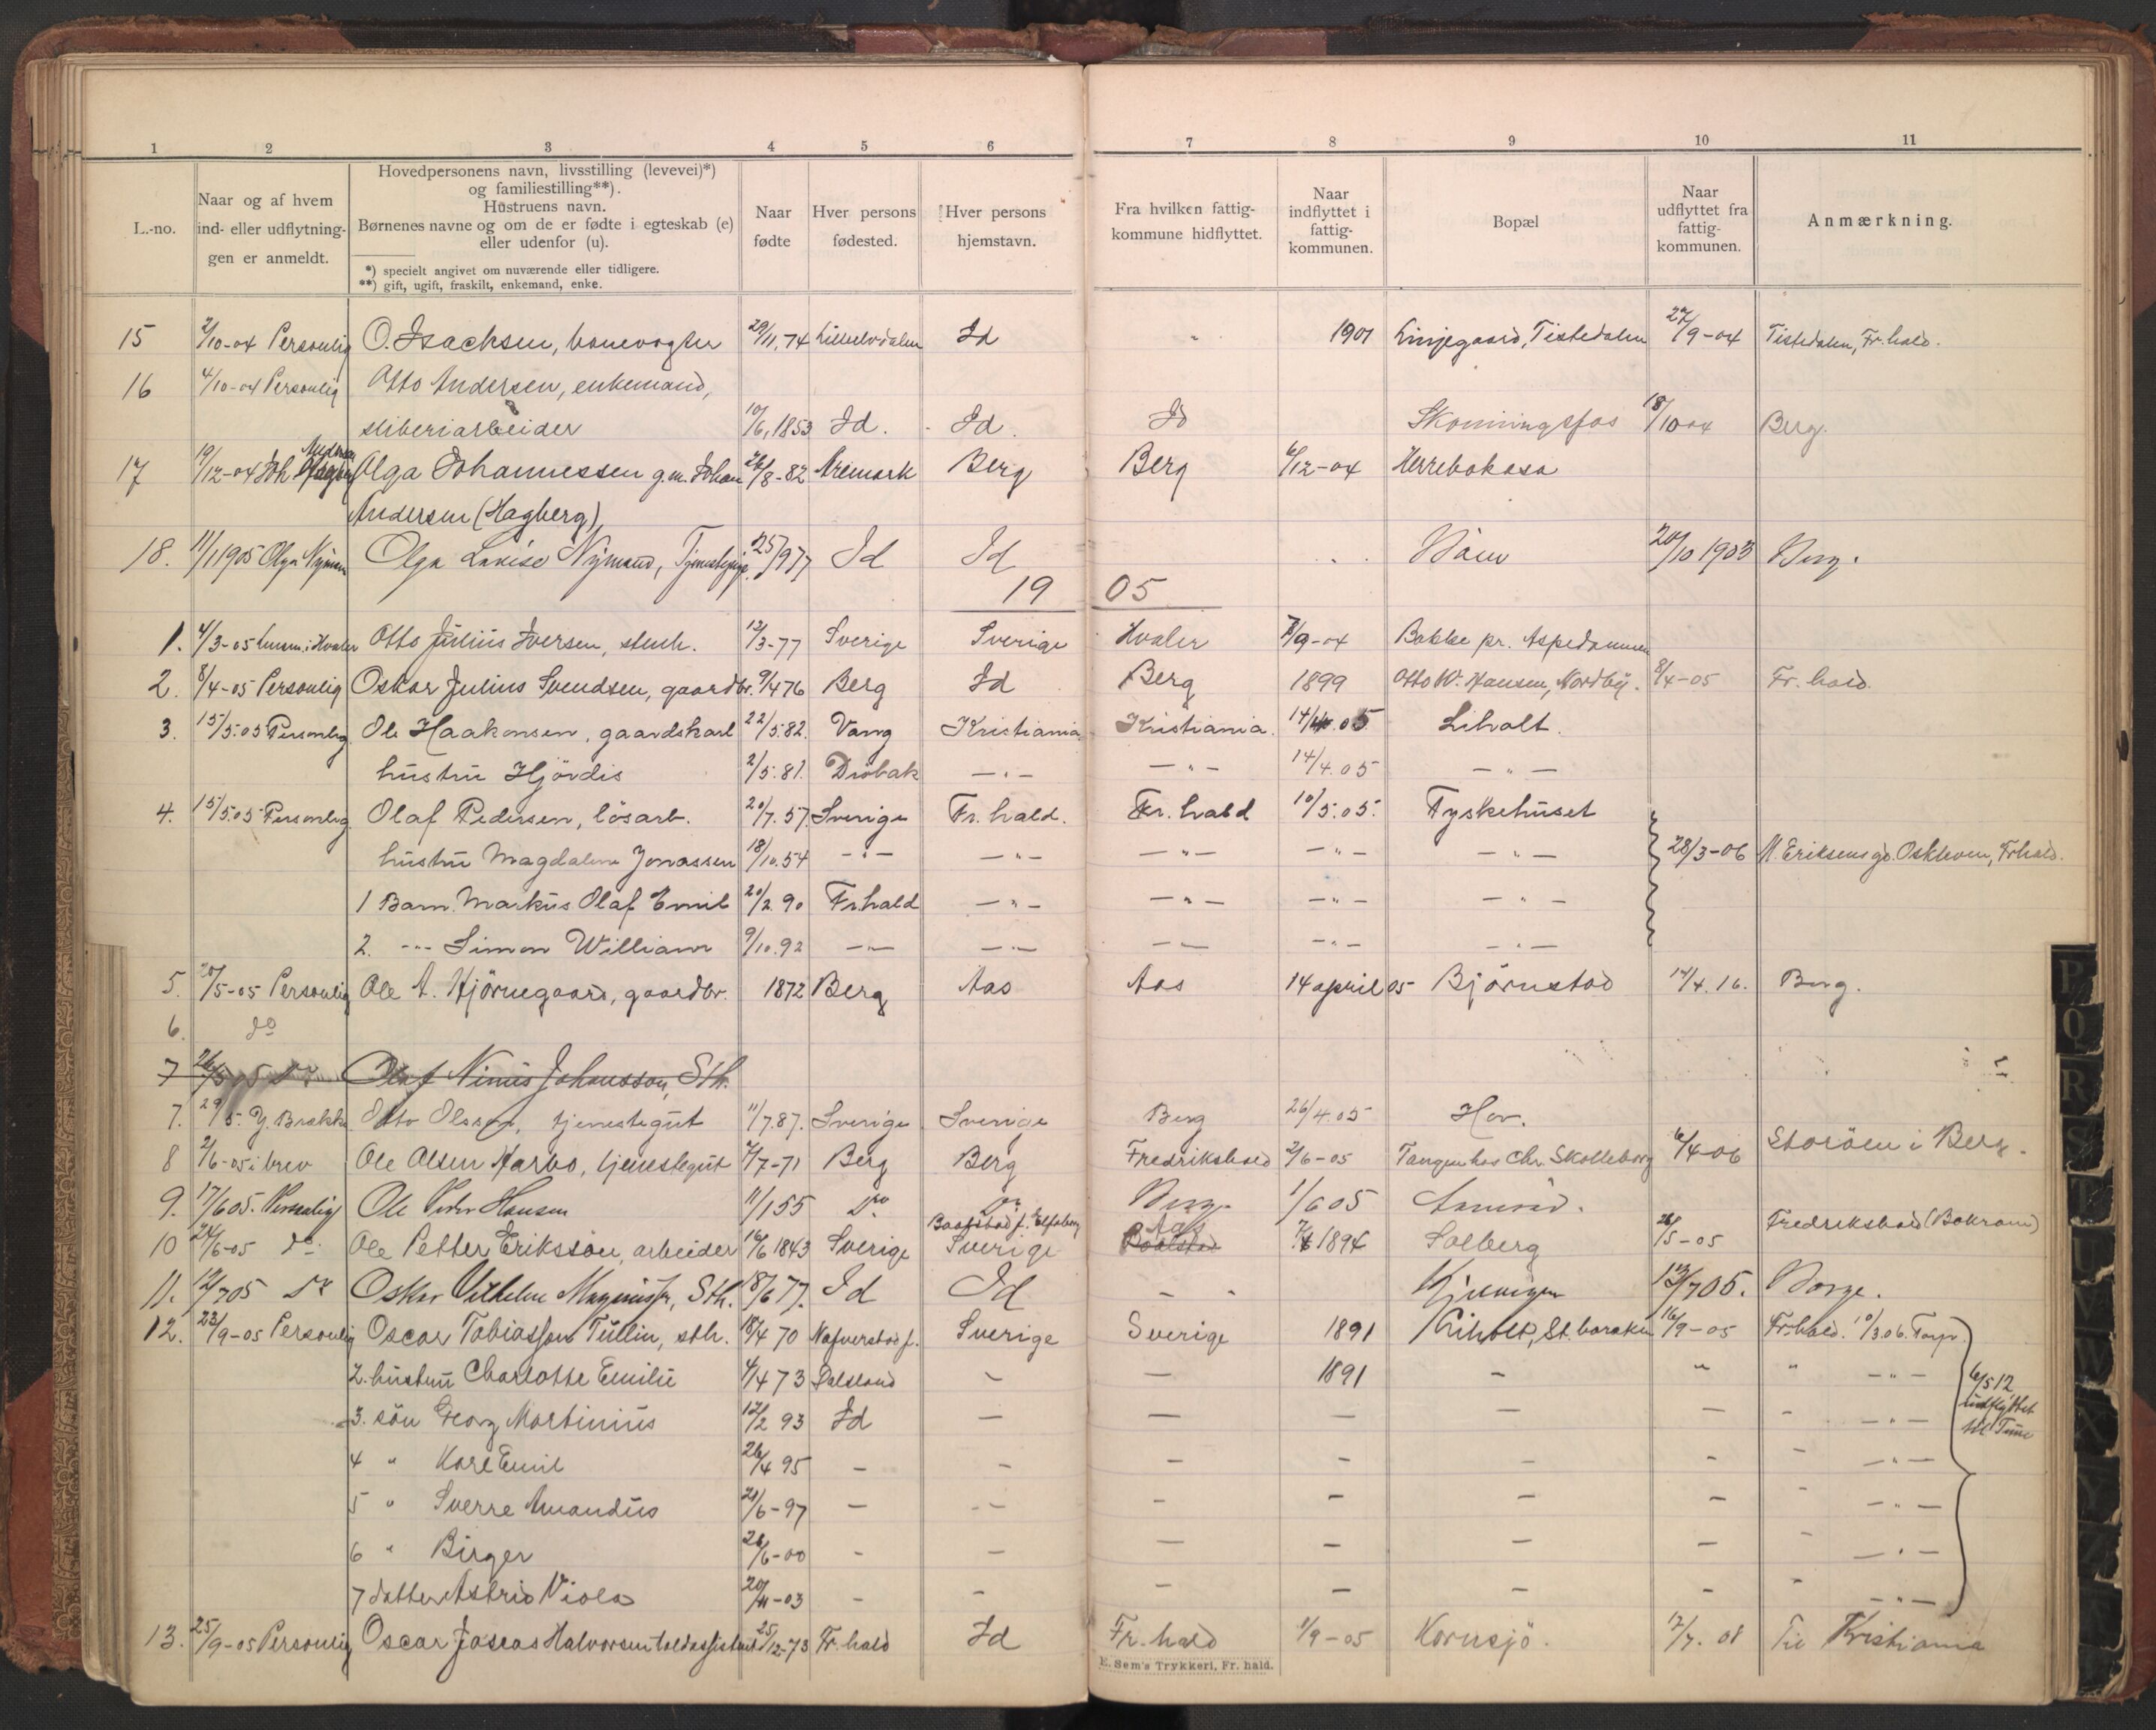 1 2 3 4 5 6 7 8 9 10 11
L.-no.
Naar og af hvem
ind- eller udflytning-
gen er anmeldt.
Hovedpersonens navn, livsstilling (levevei)*)
og familiestilling**).
Hustruens navn.
Børnenes navne og om de er fødte i egteskab (e)
eller udenfor (u).
*) specielt angivet om nuværende eller tidligere.
**) gift, ugift, fraskilt, enkemand, enke.
Naar
fødte
Hver persons
fødested.
Hver persons
hjemstavn.
Fra hvilken fattig-
kommune hidflyttet.
Naar
indflyttet i
fattig-
kommunen.
Bopæl
Naar
udflyttet fra
fattig-
kommunen.
Anmærkning.
15 2/10-04 Personlig O. Isachsen, banevogter 29/11,74 Id 1901 Linjegaard, Tistedalen 27/9-04 Tistedalen, Fr.hald.
16 4/10-04 Personlig Otto Andersen, enkemand,
sliberiarbeider 10/6, 1853 Id. Id. Id Skonningsfos 18/10 04 Berg.
17 19/12-04 Joh Andersen Olga Johannessen g.m. Johan 26/8-82 Aremark Berg Berg 6/12-04 Herrebokasa
Andersen (Hagberg),
18. 11/1 1905 Olga Nyman Olga Lovise Nymand, Tjenestepige. 25/9 77 Id Id 20/10 1903 Berg.
19 05
1. 4/3-05 Lensm. i Hvaler Otto Julius Iversen, stenh. 12/3-77 Sverige Sverige Hvaler 7/9-04 Bakke pr. Aspedammen
2. 8/4-05 Personlig Oskar Julius Svendsen, gaardbr. 9/4 76 Berg Id Berg 1899 Otto W. Hansen, Nordby. 8/4-05 Fr.hald.
3. 15/5.05 Personlig Ole Haakonsen, gaardskarl 22/5.82. Vang Kristiania Kristiania. 14/4.05 Liholt.
hustru Hjördis 2/5.81. Dröbak — " — — " — 14/4.05 — " —
4. 15/5.05 Personlig. Olaf Pedersen, lösarb. 20/7.57. Sverige Fr.hald. Fr.hald 10/5.05. Tyskehuset
hustru Magdalene Jonassen 18/10.54 — " — — " — — " — — " — — " — 28/3-06 M. Eriksens gd. Oskleven, Frhald.
1 Barn. Markus Olaf Emil 20/2.90 Fr.hald — " — — " — — " — — " —
2. — " — Simon William 9/10.92 — " — — " — — " — — " — — " —
5. 20/5-05 Personlig Ole A. Hjörnegaard, gaardbr. 1872 Berg Aas Aas 14 april 05 Björnstad 14/4.16. Berg.
6. do
7 26/5 05 Do Olaf Ninus Johansson, Sth.
7. 29/5. Olsen, tjenestegut 11/7.87. Sverige Sverige Berg 26/4.05 Hov.
8 2/6-05 i brev Ole Olsen Harbo, tjenestegut 4/7-71 Berg Berg Fredrikshald 2/6-05 Tangen hos Chr. Skolleborg 6/4-06 Storöen i Berg.
9. 17/6 05. Personlig Ole Peter Hansen 11/1 55 Do Do Berg. 1/6 05
10 24/6-05 do. Ole Petter Eriksson, arbeider 16/6 1843 Sverige Sverige Aas 1894 Solberg 26/5-05 Fredrikshald (Bakrami)
11. 12/7 05 Do Oskar Vilhelm Magnussen, Sth. 18/6 77. Id Id - - 12/7 05. Borge.
12. 23/9-05 Personlig Oscar Tobiassson Tullin, sth. 18/4 70 Nafverstad s. Sverige Sverige 1891 Liholt, St. barakke 16/9-05 Fr.hald. 10/3.06. Torp.
2. hustru Charlotte Emilie 4/4 73 Dalsland — — 1891 — " " — " —
3. sön Georg Martinius 12/2 93 Id — — — — — — " — 6/5 12 udflyttet til Tune
4 " Karl Emil 26/4 95 — — — — — — — — " —
5 " Sverre Amandus 21/6-97 — — — — — — — — " —
6 " Birger 26/6-00 — — — — — — — — " —
7 datter Astrid Viola 20/11-03 — — — — — — — — " —
13. 25/9-05 Personlig Oscar Joseas Halvorsen toldassistent 25/12-73 Fr.hald Id Fr.hald 1/9-05 Kornsjö. 12/7.08 Til Kristiania
E. Sem's Trykkeri, Fr. hald.
P
Q
R
S
T
U
V
W
X
Y
Z